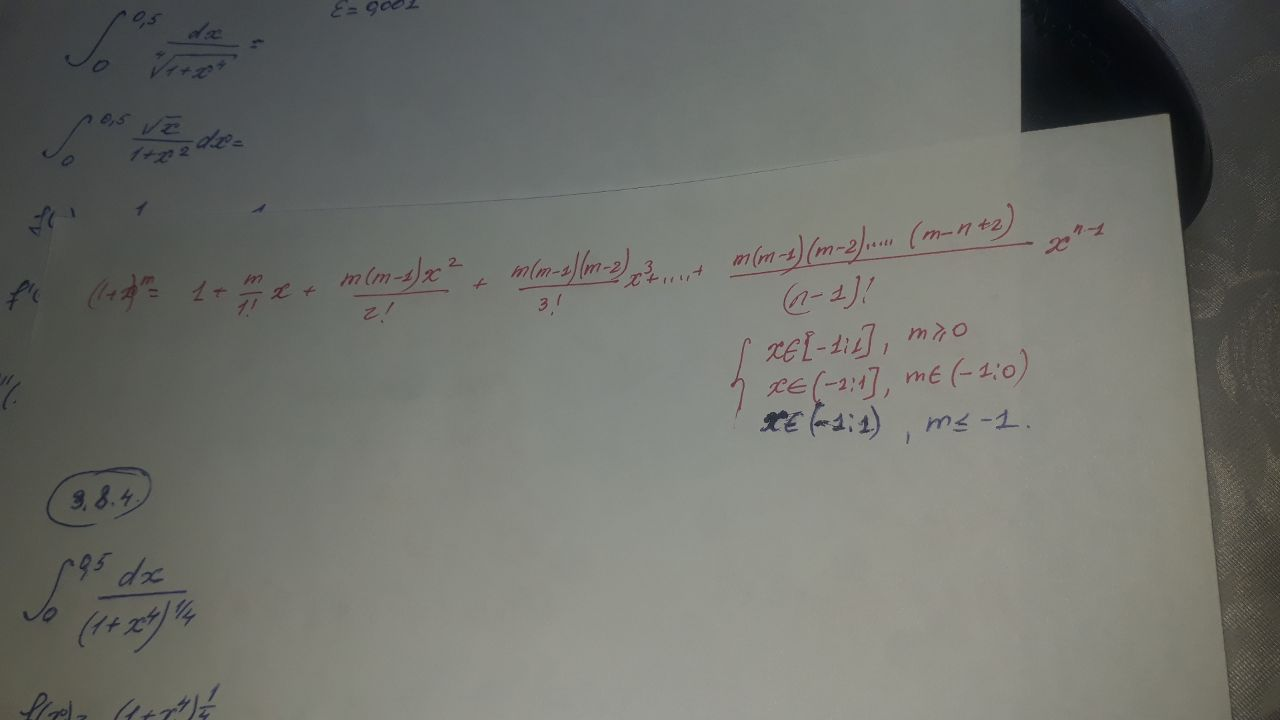 ∫₀^0,5 dx / ⁴√(1+x⁴) =
ε = 0,001
∫₀^0,5 √x / (1+x²) dx =
(1+x)^m = 1 + m/1! x + m(m-1)x² / 2! + m(m-1)(m-2) / 3! x³ + .... + m(m-1)(m-2)..... (m-n+2) / (n-1)! x^(n-1)
{ x∈[-1;1], m⩾0
x∈(-1;1], m∈(-1;0)
x∈(-1;1), m≤-1.
3.8.4.
∫₀^0,5 dx / (1+x⁴)^1/4
f(x) = (1+x⁴)^1/4